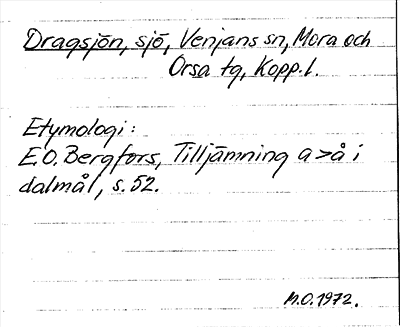 Dragsjön, sjö, Venjans sn, Mora och
Orsa tg, Kopp.l.
Etymologi:
E.O. Bergfors, Tilljämning a>å i
dalmål, s. 52.
M.O. 1972.